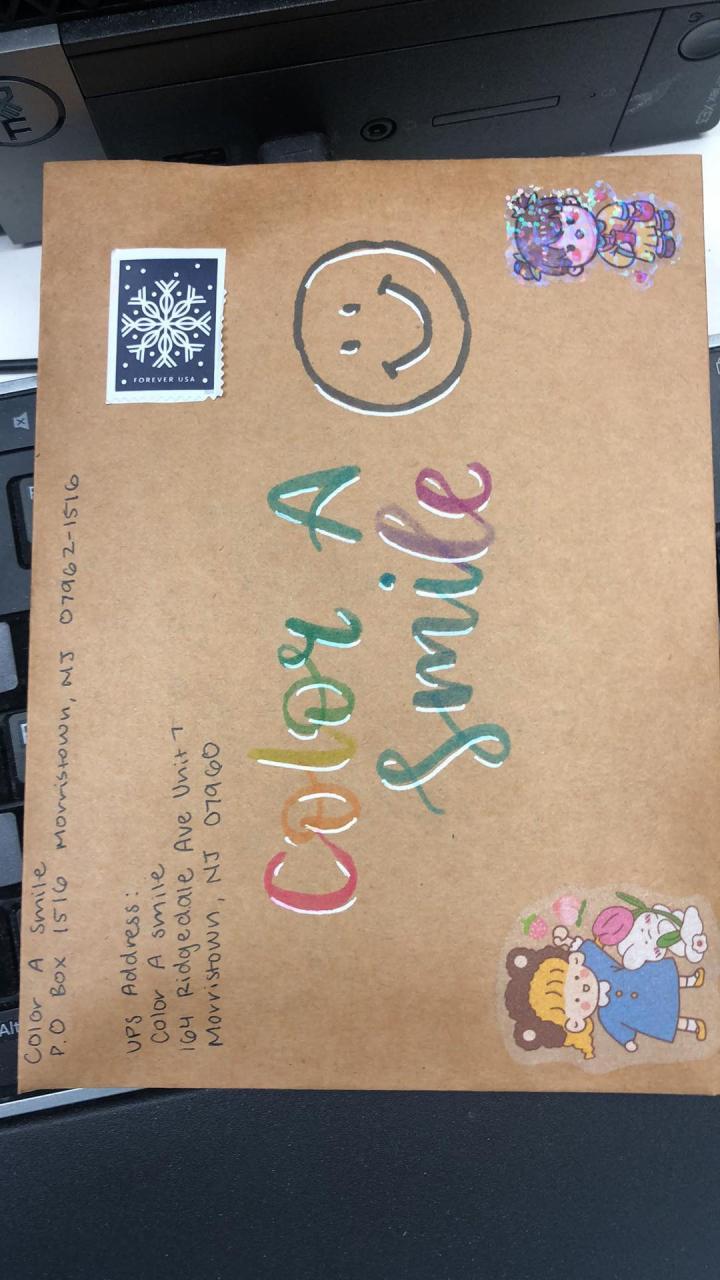 Color A Smile
P.O Box 1516 Morristown, NJ 07962-1516
UPS Address:
Color A Smile
164 Ridgedale Ave Unit 7
Morristown, NJ 07960
FOREVER USA
Color A
Smile
DELL
XE3
Alt